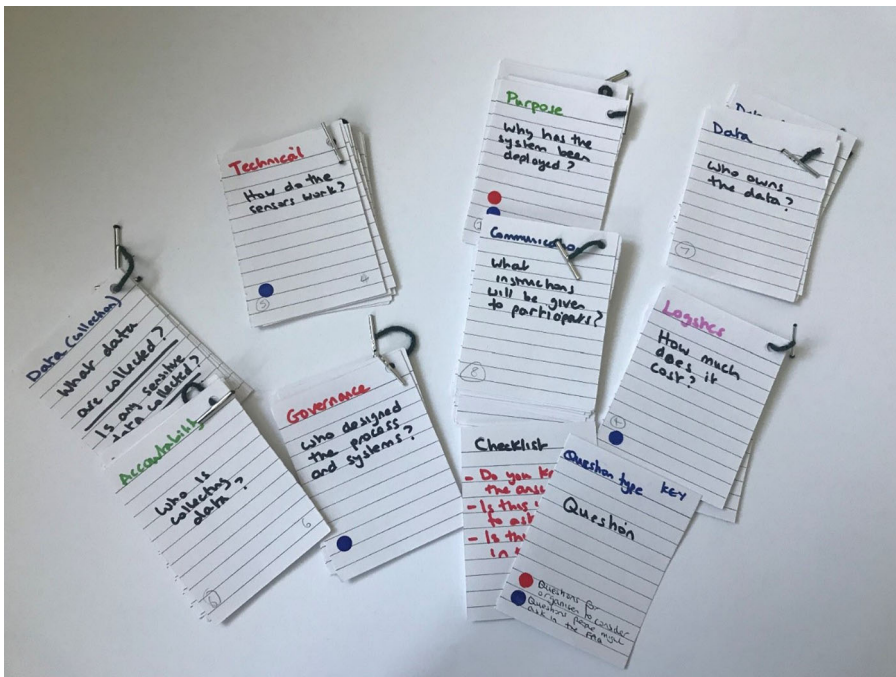 Technical
How do the
sensors work?
5
4
Purpose
Why has the
system been
deployed?
Data
Who owns
the data?
7
Communication
What
instructions
will be given
to participants?
8
Logistics
How much
does it
cost?
Data (collection)
What data
are collected?
Is any sensitive
data collected?
Accountability
Who is
collecting
data?
6
Governance
Who designed
the process
and systems?
Checklist
- Do you
the
- Is this
to ask
- Is
in
Question type KEY
Question
Questions for
organiser to consider
Questions people might
ask in the